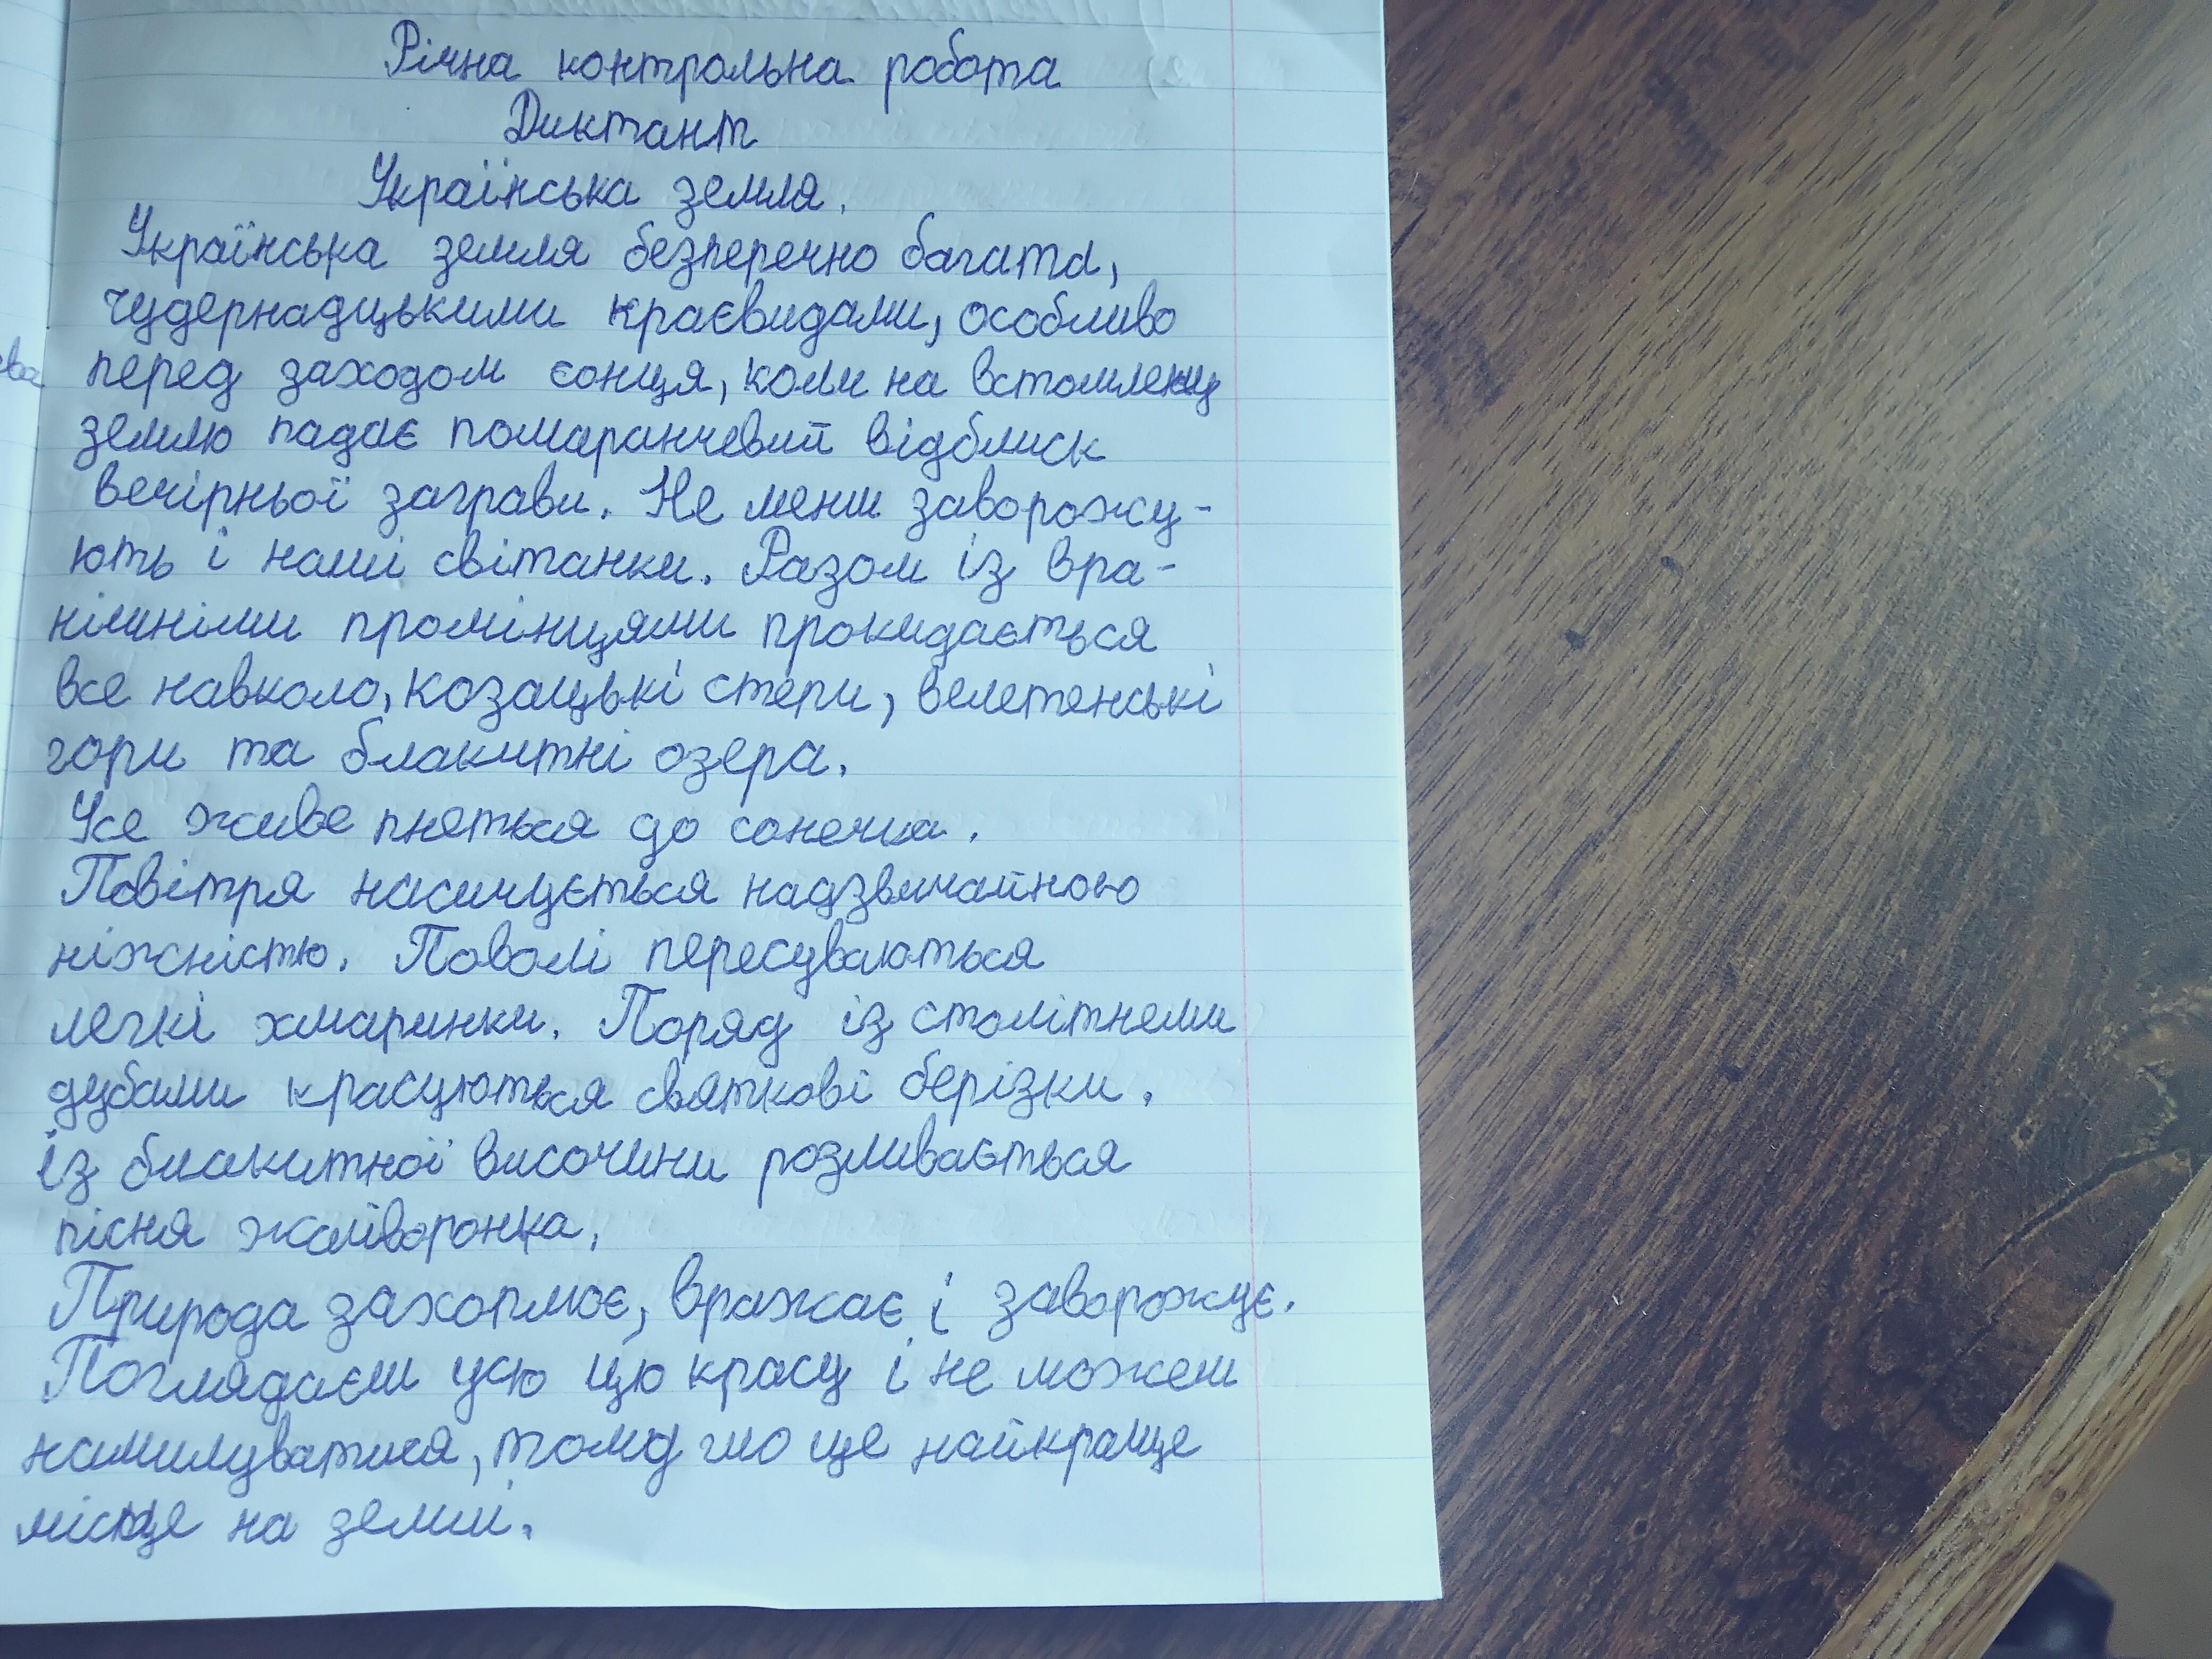 Річна контрольна робота
Диктант
Українська земля.
Українська земля безперечно багата,
чудернадцькими краєвидами, особливо
перед заходом сонця, коли на встомлену
землю падає помаранчевий відблиск
вечірньої заграви. Не менш заворожу-
ють і наші світанки. Разом із вра-
нішніми промінцями прокидається
все навколо, козацькі степи, велетенські
гори та блакитні озера.
Усе живе пнеться до сонечка.
Повітря насичується надзвичайною
ніжністю. Поволі пересуваються
легкі хмаринки. Поряд із столітнеми
дубами красуються святкові берізки.
із блакитної височини розливається
пісня жайворонка.
Природа захоплює, вражає і заворожує.
Поглядаєш усю цю красу і не можеш
намилуватися, тому що це найкраще
місце на землі.